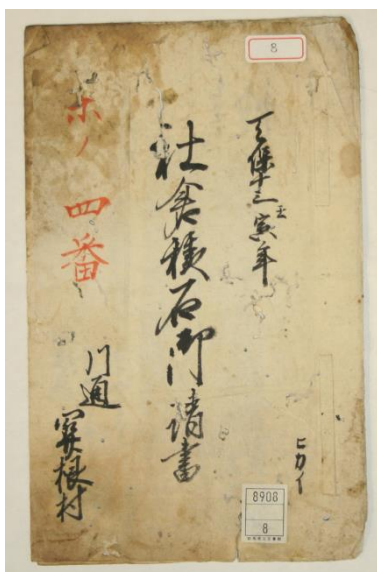 8
天保十三壬寅年
社倉積石御請書
ホノ四番
川通
根村
ヒカイ
8908
8